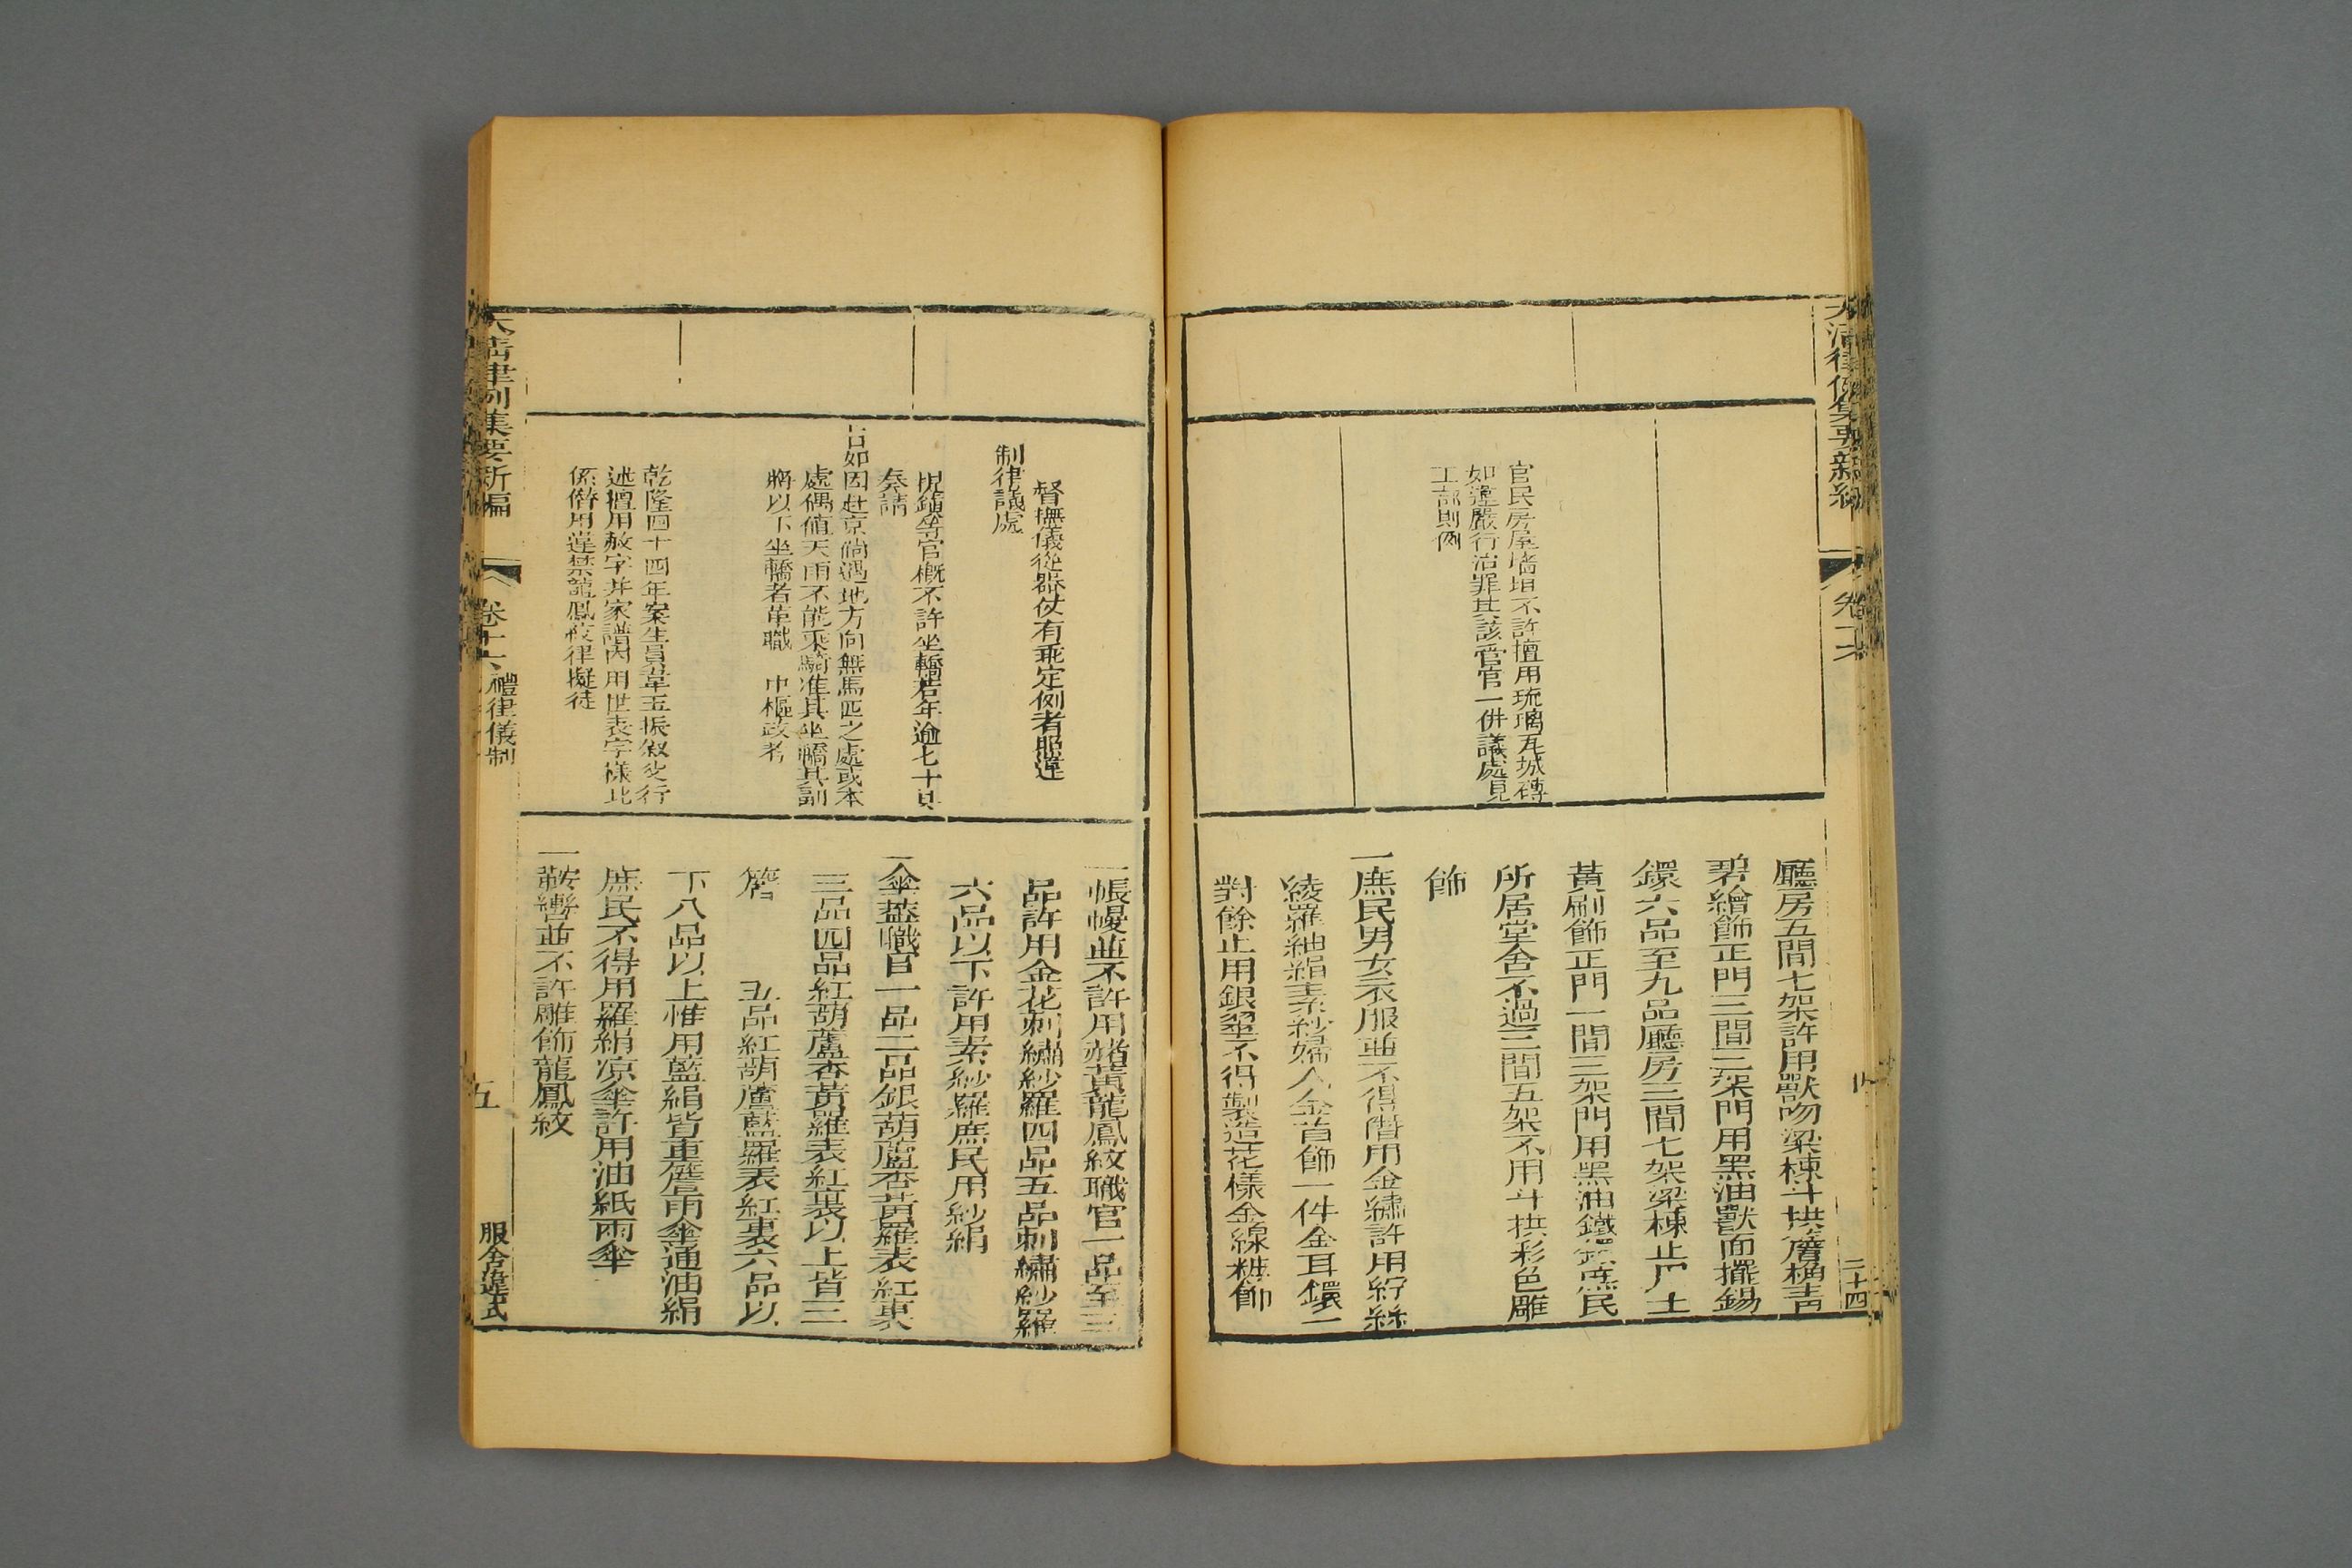 大清律例集要新編
卷十六
二十四
官民房屋墻垣不許擅用琉璃瓦城磚
如違嚴行治罪其該管官一併議處見
工部則例
廳房五間七架許用獸吻梁棟斗拱簷桷青
碧繪飾正門三間三架門用黑油獸面擺錫
鐶六品至九品廳房三間七架梁棟止用土
黃刷飾正門一間三架門用黑油鐵鐶庶民
所居堂舍不過三間五架不用斗拱彩色雕
飾
一庶民男女衣服並不得僭用金繡許用紵絲
綾羅紬絹素紗婦人金首飾一件金耳鐶一
對餘止用銀翠不得製造花樣金線粧飾
督撫儀從器仗有乖定例者照違
制律議處
提鎮等官概不許坐轎若年逾七十具
奏請
旨如因赴京倘遇地方向無馬匹之處或本
處偶値天雨不能乘騎准其坐轎其副
將以下坐轎者革職 中樞政考
乾隆四十四年案生員韋玉振叙父行
述擅用赦字并家譜內用世表字樣比
依僭用違禁龍鳳紋律擬徒
一帳幔並不許用赭黃龍鳳紋職官一品至三
品許用金花刺繡紗羅四品五品刺繡紗羅
六品以下許用素紗羅庶民用紗絹
一傘蓋職官一品二品銀葫蘆杏黃羅表紅裏
三品四品紅葫蘆杏黃羅表紅裏以上皆三
簷 五品紅葫蘆藍羅表紅裏六品以
下八品以上惟用藍絹皆重簷雨傘通油絹
庶民不得用羅絹凉傘許用油紙雨傘
一鞍轡並不許雕飾龍鳳紋
大清律例集要新編
卷十六
禮律儀制
五
服舍違式